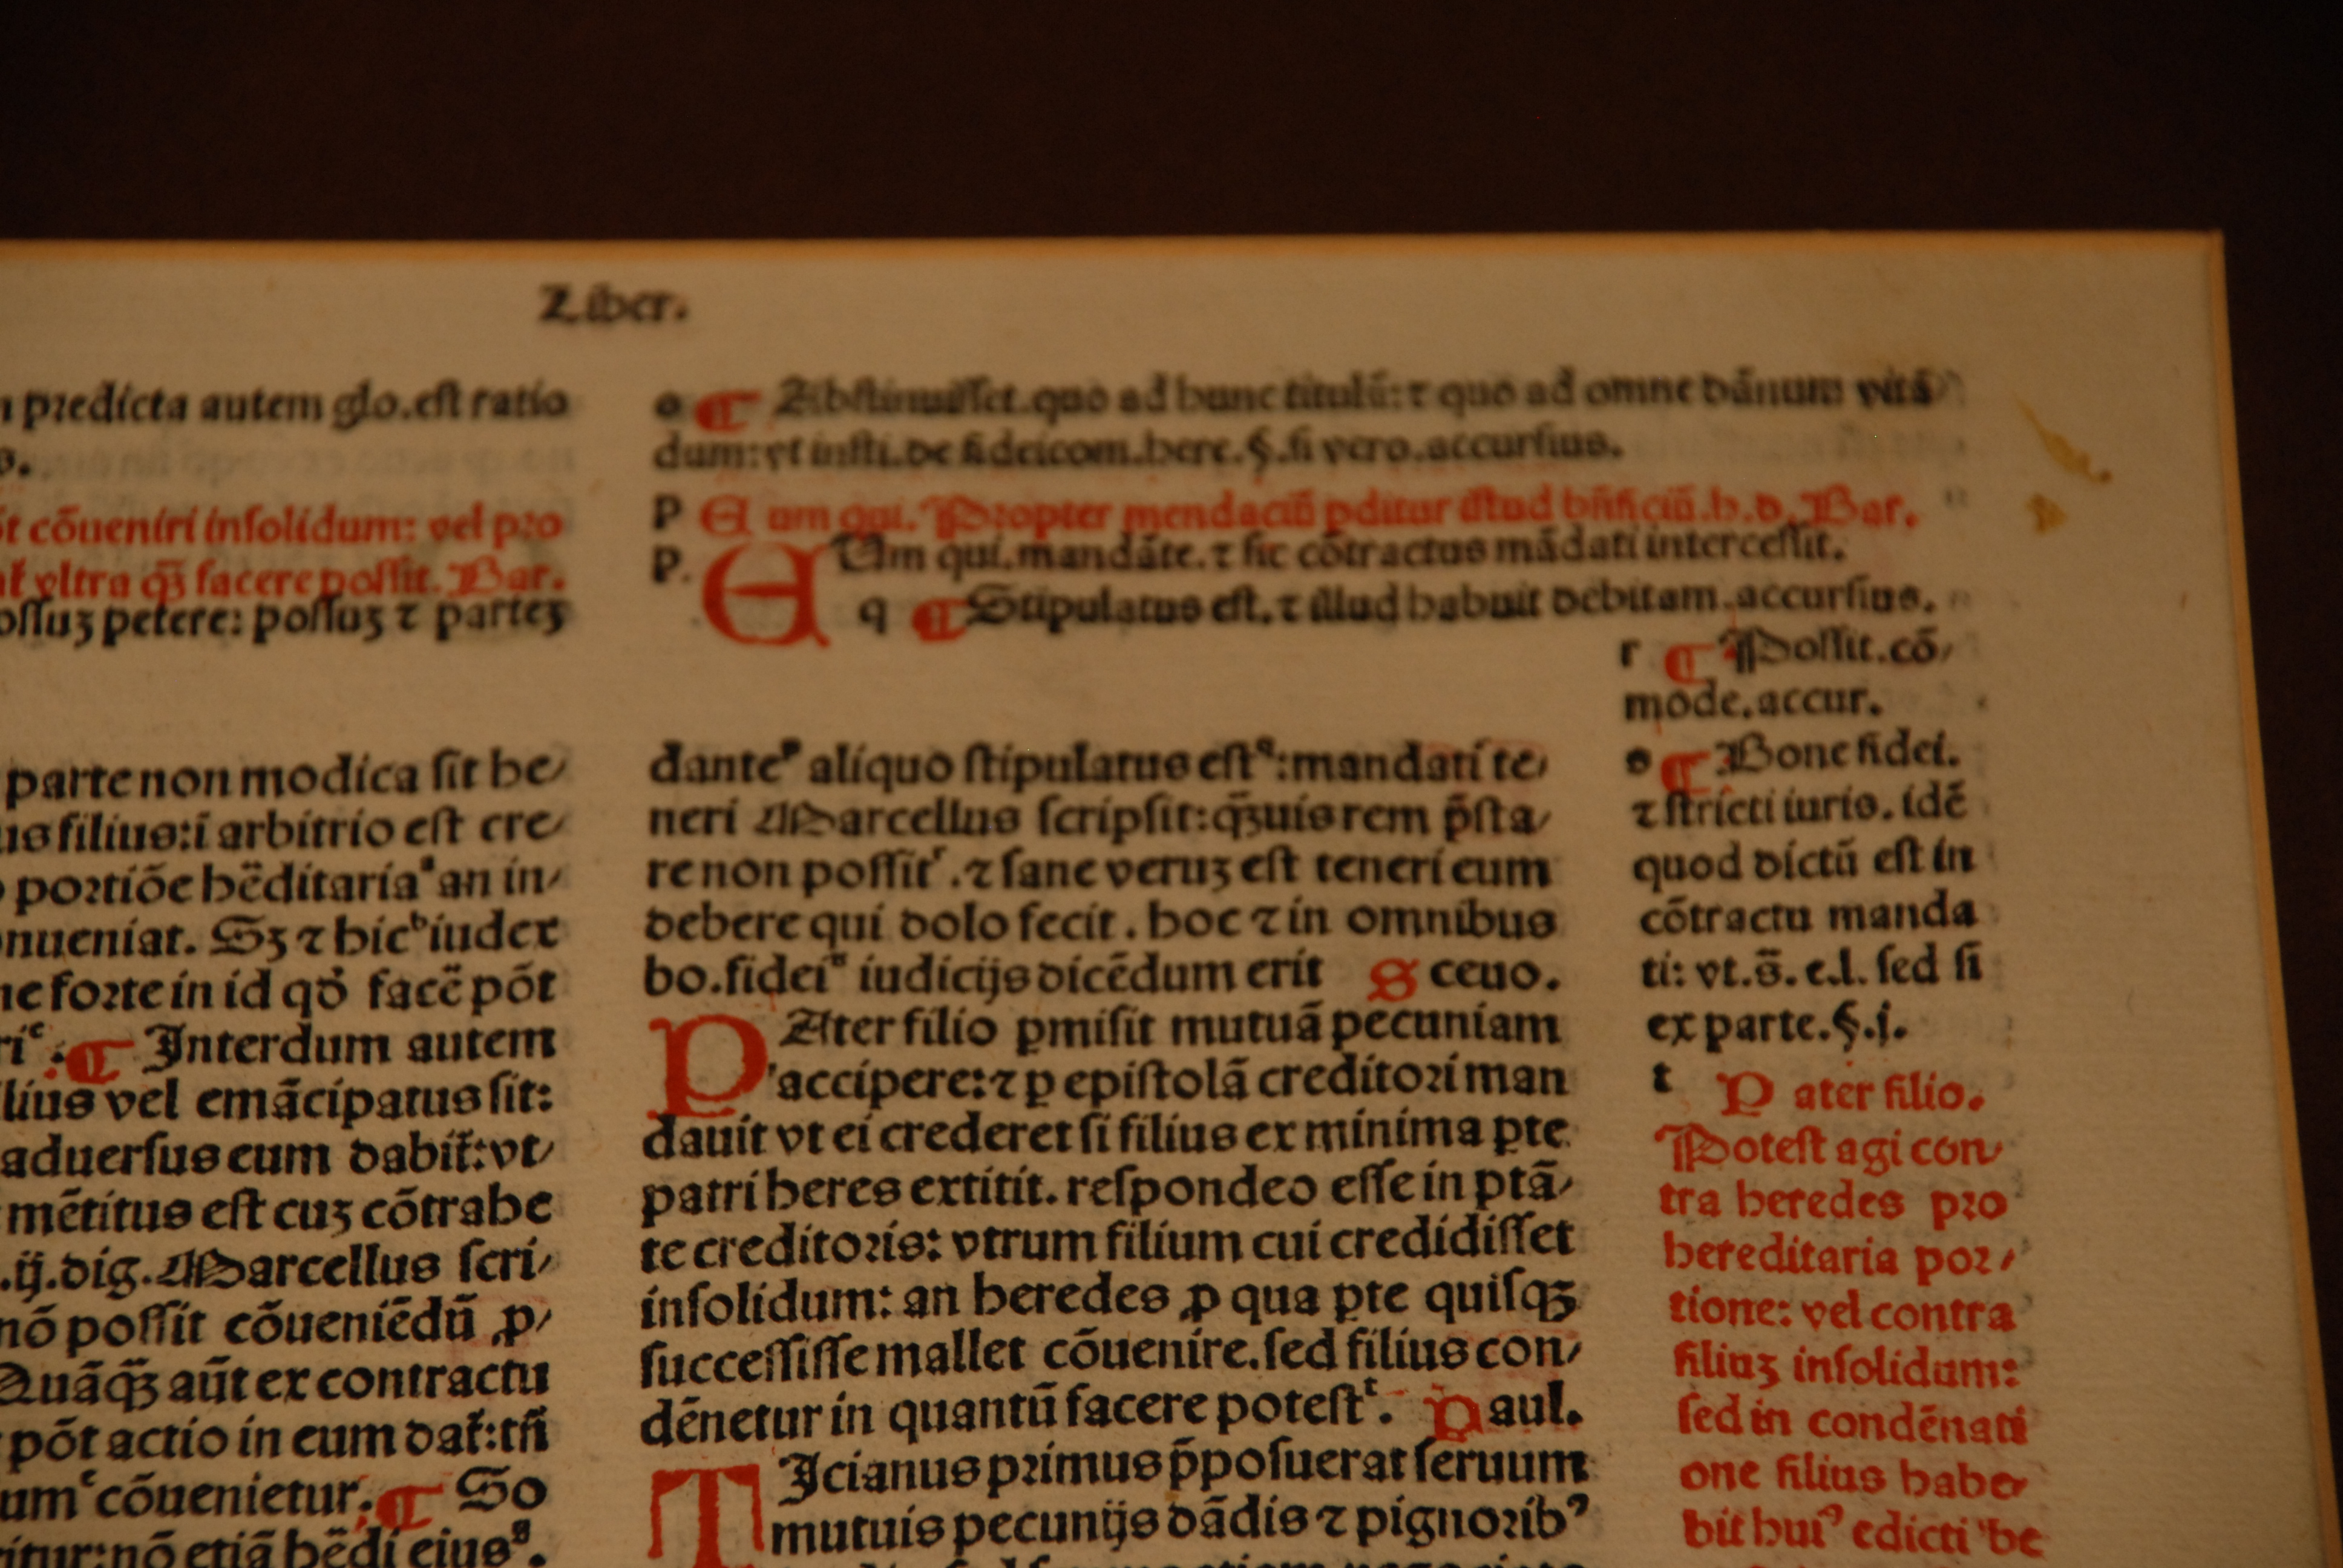 Liber.
predicta autem glo.est ratio
s.
cōueniri insolidum: vel pro
vltra qȝ̄ facere possit. Bar.
possuȝ petere: possuȝ ⁊ parteȝ
parte non modica sit be/
us filius:ī arbitrio est cre/
portiōe hēditaria an in/
nueniat. Sȝ ⁊ hic iudex
forte in id qd̓ facē pōt
ri. ¶ Interdum autem
lius vel emācipatus sit:
aduersus eum dabit̄: vt/
mētitus est cuȝ cōtrahe
.ij.dig. Marcellus scri/
nō possit cōueniēdū ꝓ/
Quāqȝ̄ aūt ex contractu
pōt actio in eum dat̄: tn̄
um cōuenietur. ¶ So
itur: nō etiā hēdi eius.
o ¶ Abstinuisset.quo ad hunc titulū: ⁊ quo ad omne dānum vitā
dum: vt insti.de fideicom.here.§.si vero.accursius.
p Eum qui. Propter mendaciū ꝑditur istud bn̄ficiū.h.d. Bar.
p. EUm qui.mandāte. ⁊ sic cōtractus mādati intercessit.
q ¶ Stipulatus est. ⁊ illud habuit debitam.accursius.
dante aliquo stipulatus est: mandati te/
neri Marcellus scripsit: qȝ̄uis rem p̄sta/
re non possit. ⁊ sane veruȝ est teneri eum
debere qui dolo fecit. hoc ⁊ in omnibus
bo.fidei iudicijs dicēdum erit Sceuo.
PAter filio ꝑmisit mutuā pecuniam
accipere: ⁊ ꝑ epistolā creditori man
dauit vt ei crederet si filius ex minima ꝑte
patri heres extitit. respondeo esse in ptā/
te creditoris: vtrum filium cui credidisset
insolidum: an heredes ꝓ qua ꝑte quisqȝ
successisse mallet cōuenire. sed filius con/
dēnetur in quantū facere potest. Paul.
TIcianus primus p̄posuerat seruum
mutuis pecunijs dādis ⁊ pignoribꝰ
r ¶ Possit.cō/
mode.accur.
s ¶ Bone fidei.
⁊ stricti iuris. idē
quod dictū est in
cōtractu manda
ti: vt.s̄. e.l. sed si
ex parte.§.j.
t Pater filio.
Potest agi con/
tra heredes pro
hereditaria por/
tione: vel contra
filiuȝ insolidum:
sed in condēnati
one filius habe/
bit huiꝰ edicti be